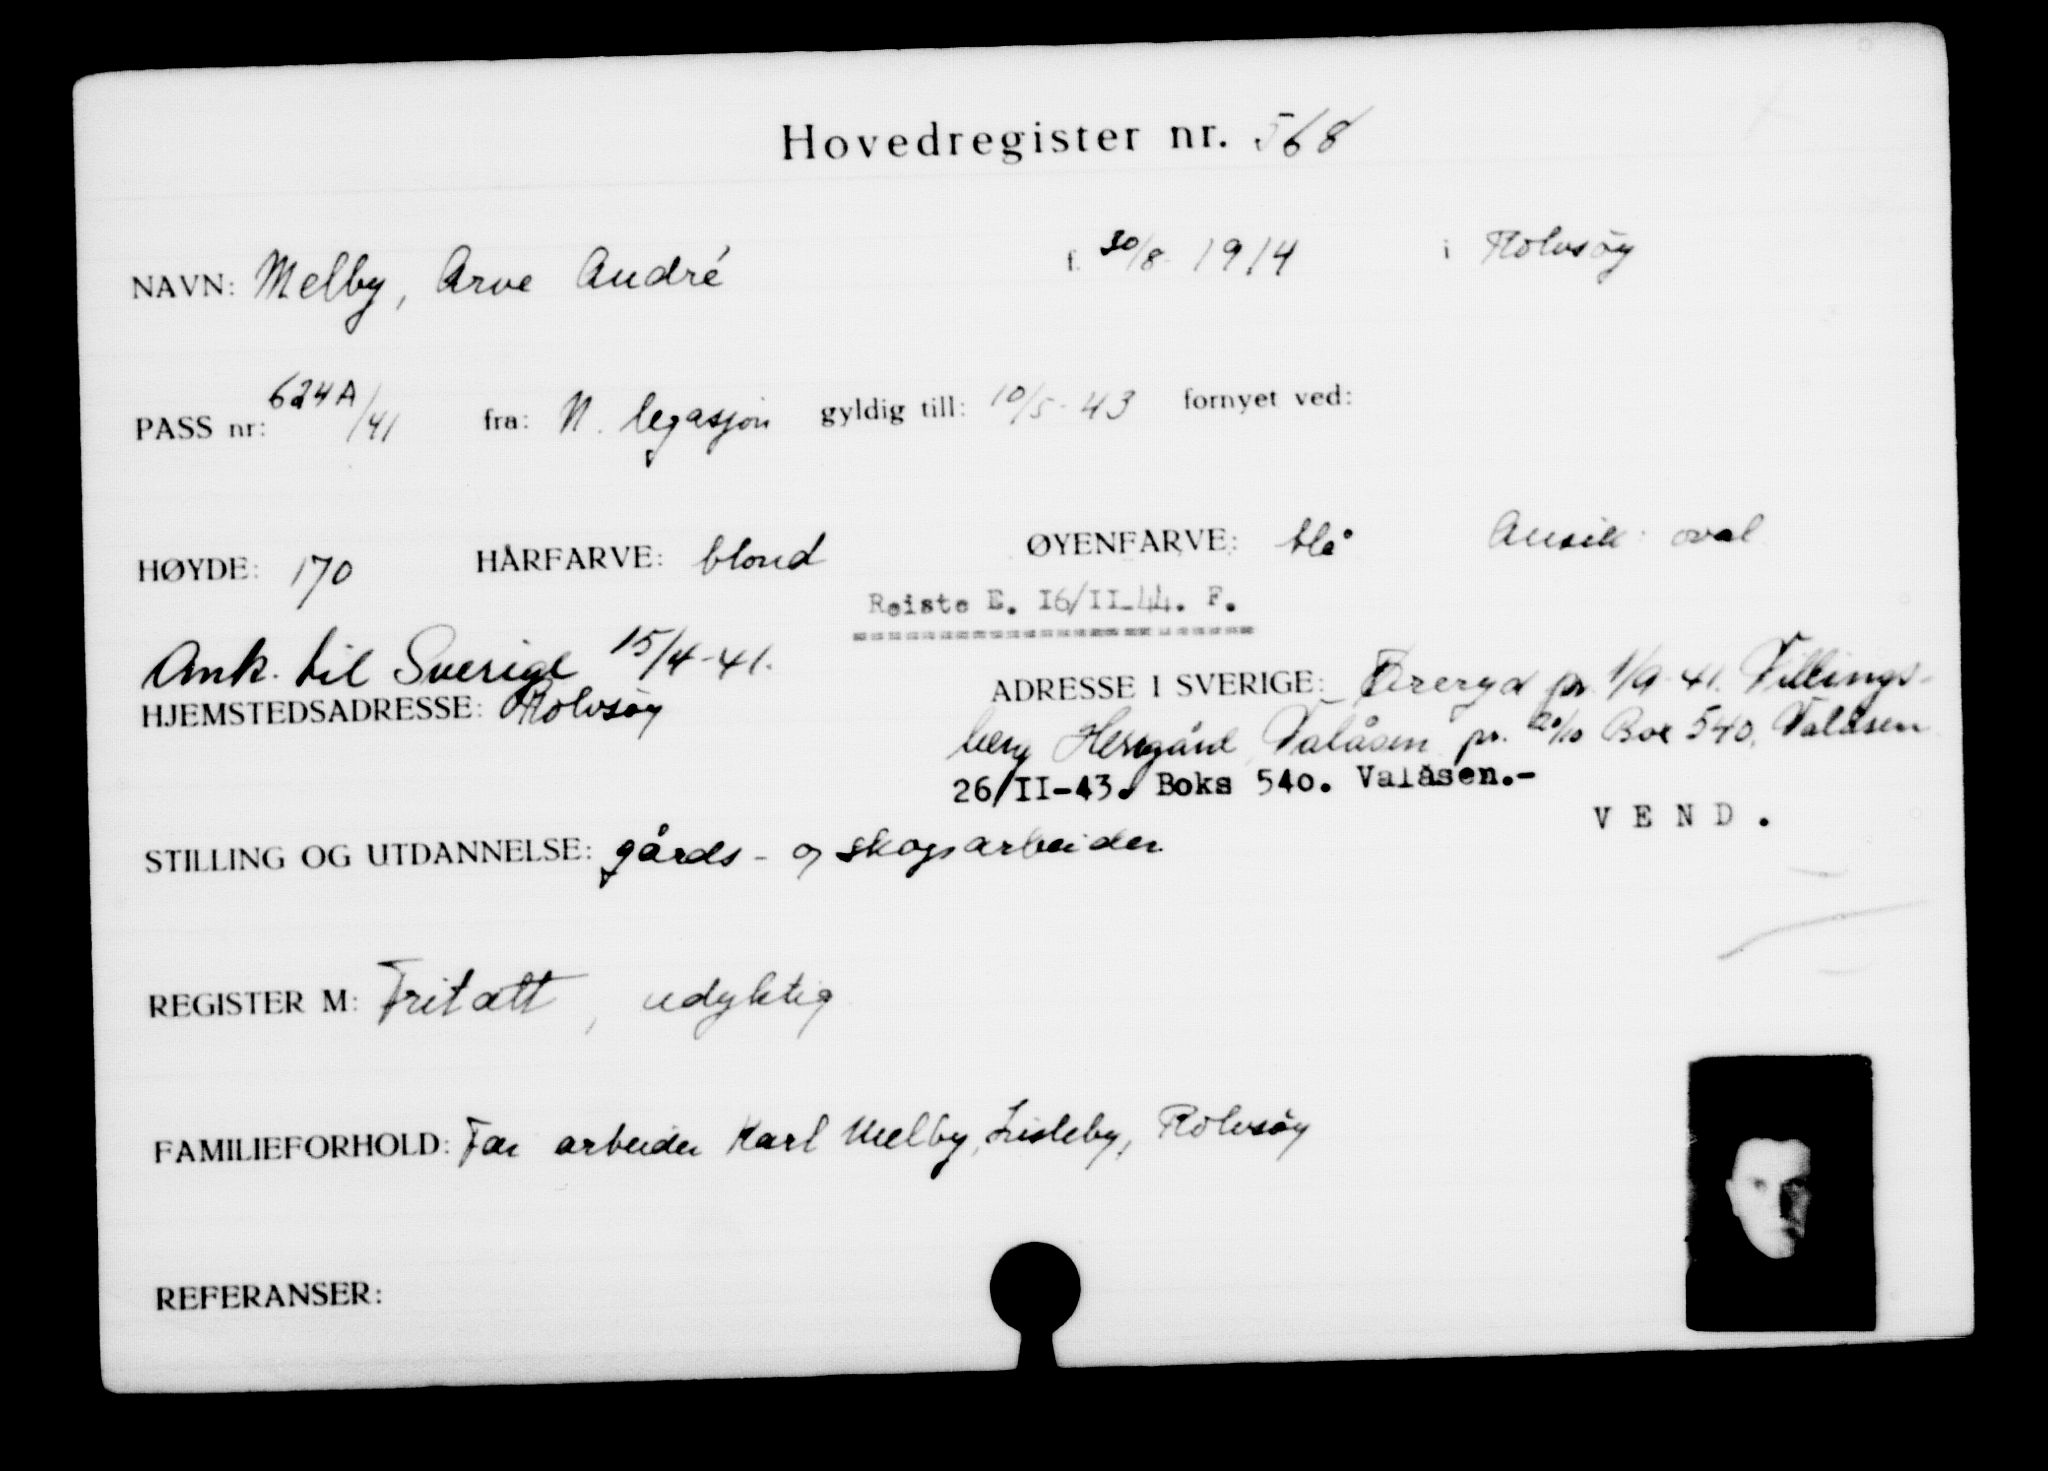 Hovedregister nr. 568
NAVN: Melby, Arve André f. 30/8- 1914 i Rolvsøy
PASS nr: 624A/41 fra: N. legasjon gyldig till: 10/5-43 fornyet ved:
HØYDE: 170 HÅRFARVE: blond ØYENFARVE: blå Ansik: oval
Reiste E. I6/II-44. F.
Ank. til Sverige 15/4-41.
HJEMSTEDSADRESSE: Rolvsøy ADRESSE I SVERIGE: Öreryd pr. 1/9-41. Villings-
berg Herrgård, Valåsen pr. 20/10 Box 540, Valåsen
26/II-43. Boks 540. Valåsen.-
V E N D .
STILLING OG UTDANNELSE: gårds- og skogsarbeider
REGISTER M: Fritatt, udyktig
FAMILIEFORHOLD: Far arbeider Karl Melby, Lisleby, Rolvsøy
REFERANSER: